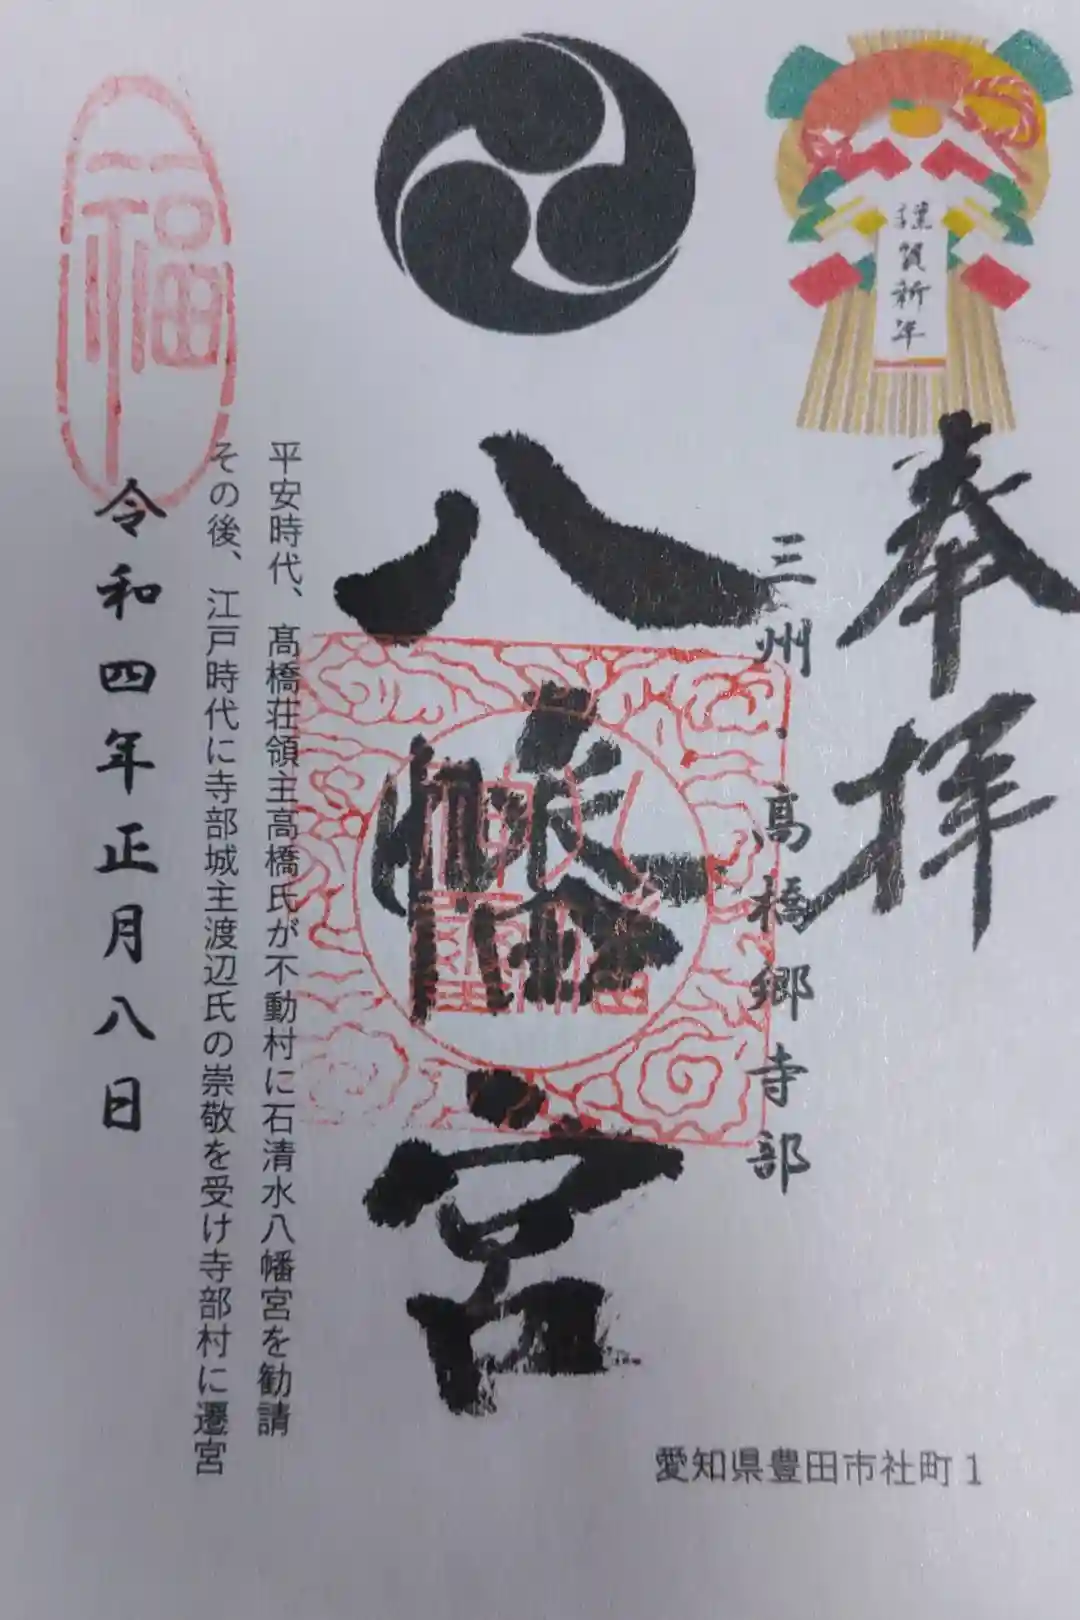 謹賀新年
奉拝
三州・高橋郷寺部
八幡宮
平安時代、髙橋荘領主高橋氏が不動村に石清水八幡宮を勧請
その後、江戸時代に寺部城主渡辺氏の崇敬を受け寺部村に遷宮
福
令和四年正月八日
愛知県豊田市社町1